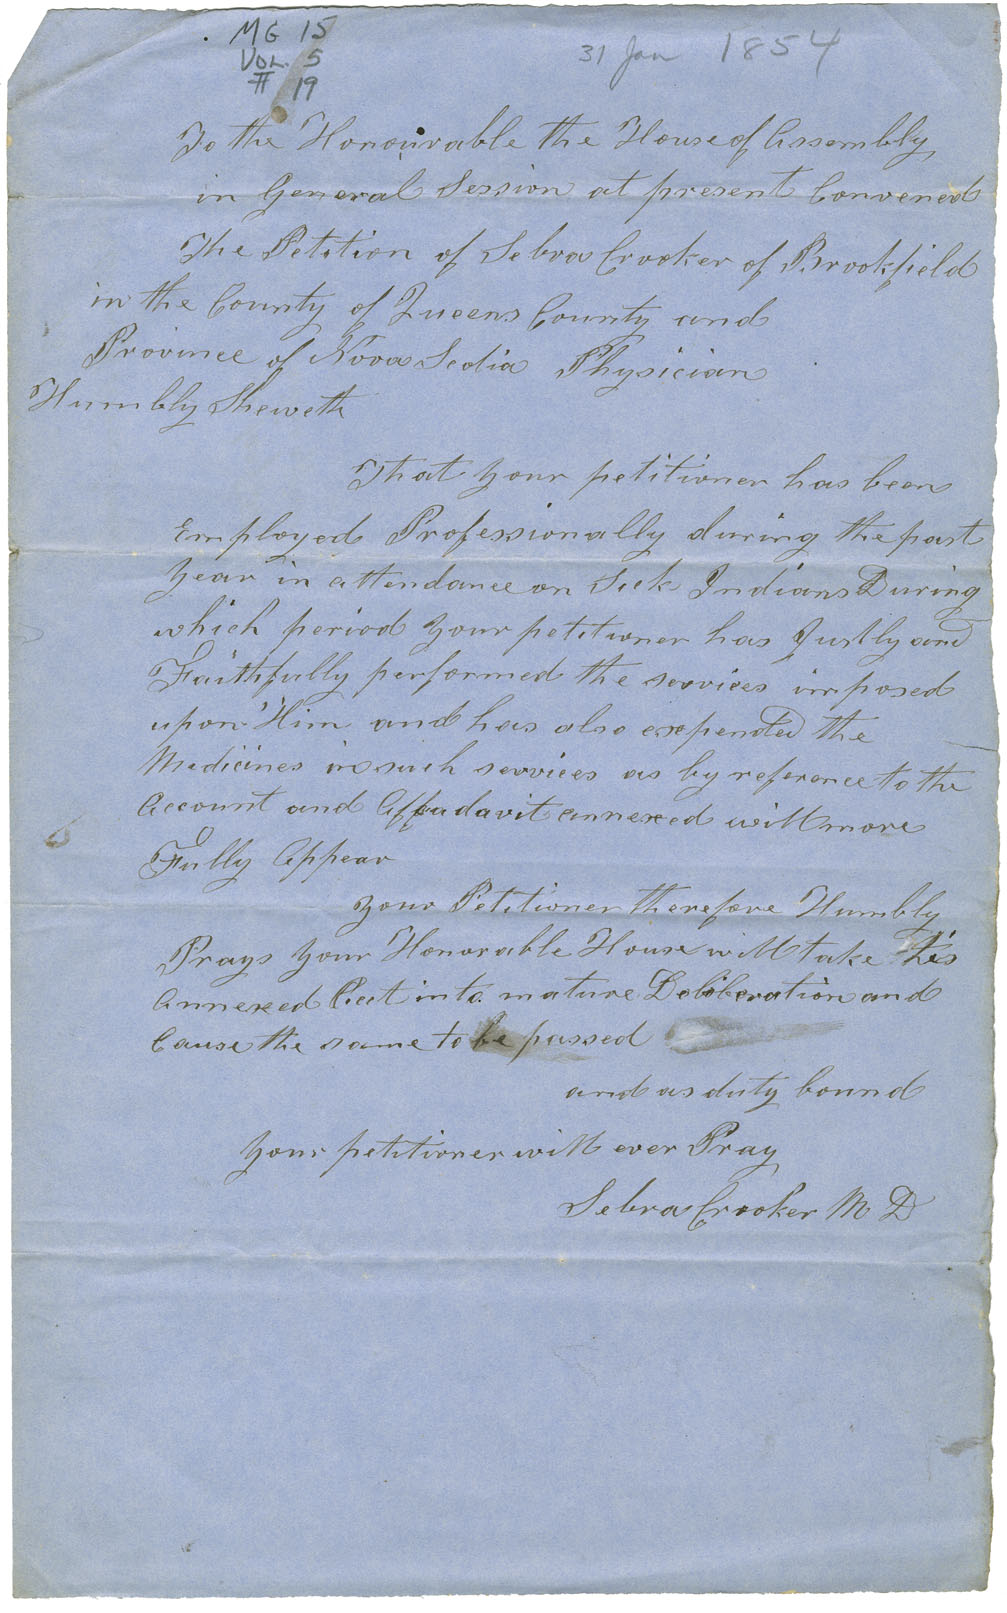 MG 15
VOL. 5
# 19
31 Jan 1854
To the Honourable the House of Assembly
in General Session at present Convened
The Petition of Sebra Crooker of Brookfield
in the County of Queens County and
Province of Nova Scotia Physician
Humbly Sheweth
That your petitioner has been
Employed Professionally during the past
Year in attendance on Sick Indians During
which period your petitioner has Justly and
Faithfully performed the services imposed
upon Him and has also expended the
Medicines in such services as by reference to the
Account and Affudavit annexed will more
Fully Appear
your Petitioner therefore Humbly
Prays your Honorable House will take this
Annexed Acct into mature Deliberation and
Cause the same to be passed
and as duty bound
Your petitioner will ever Pray
Sebra Crooker M D